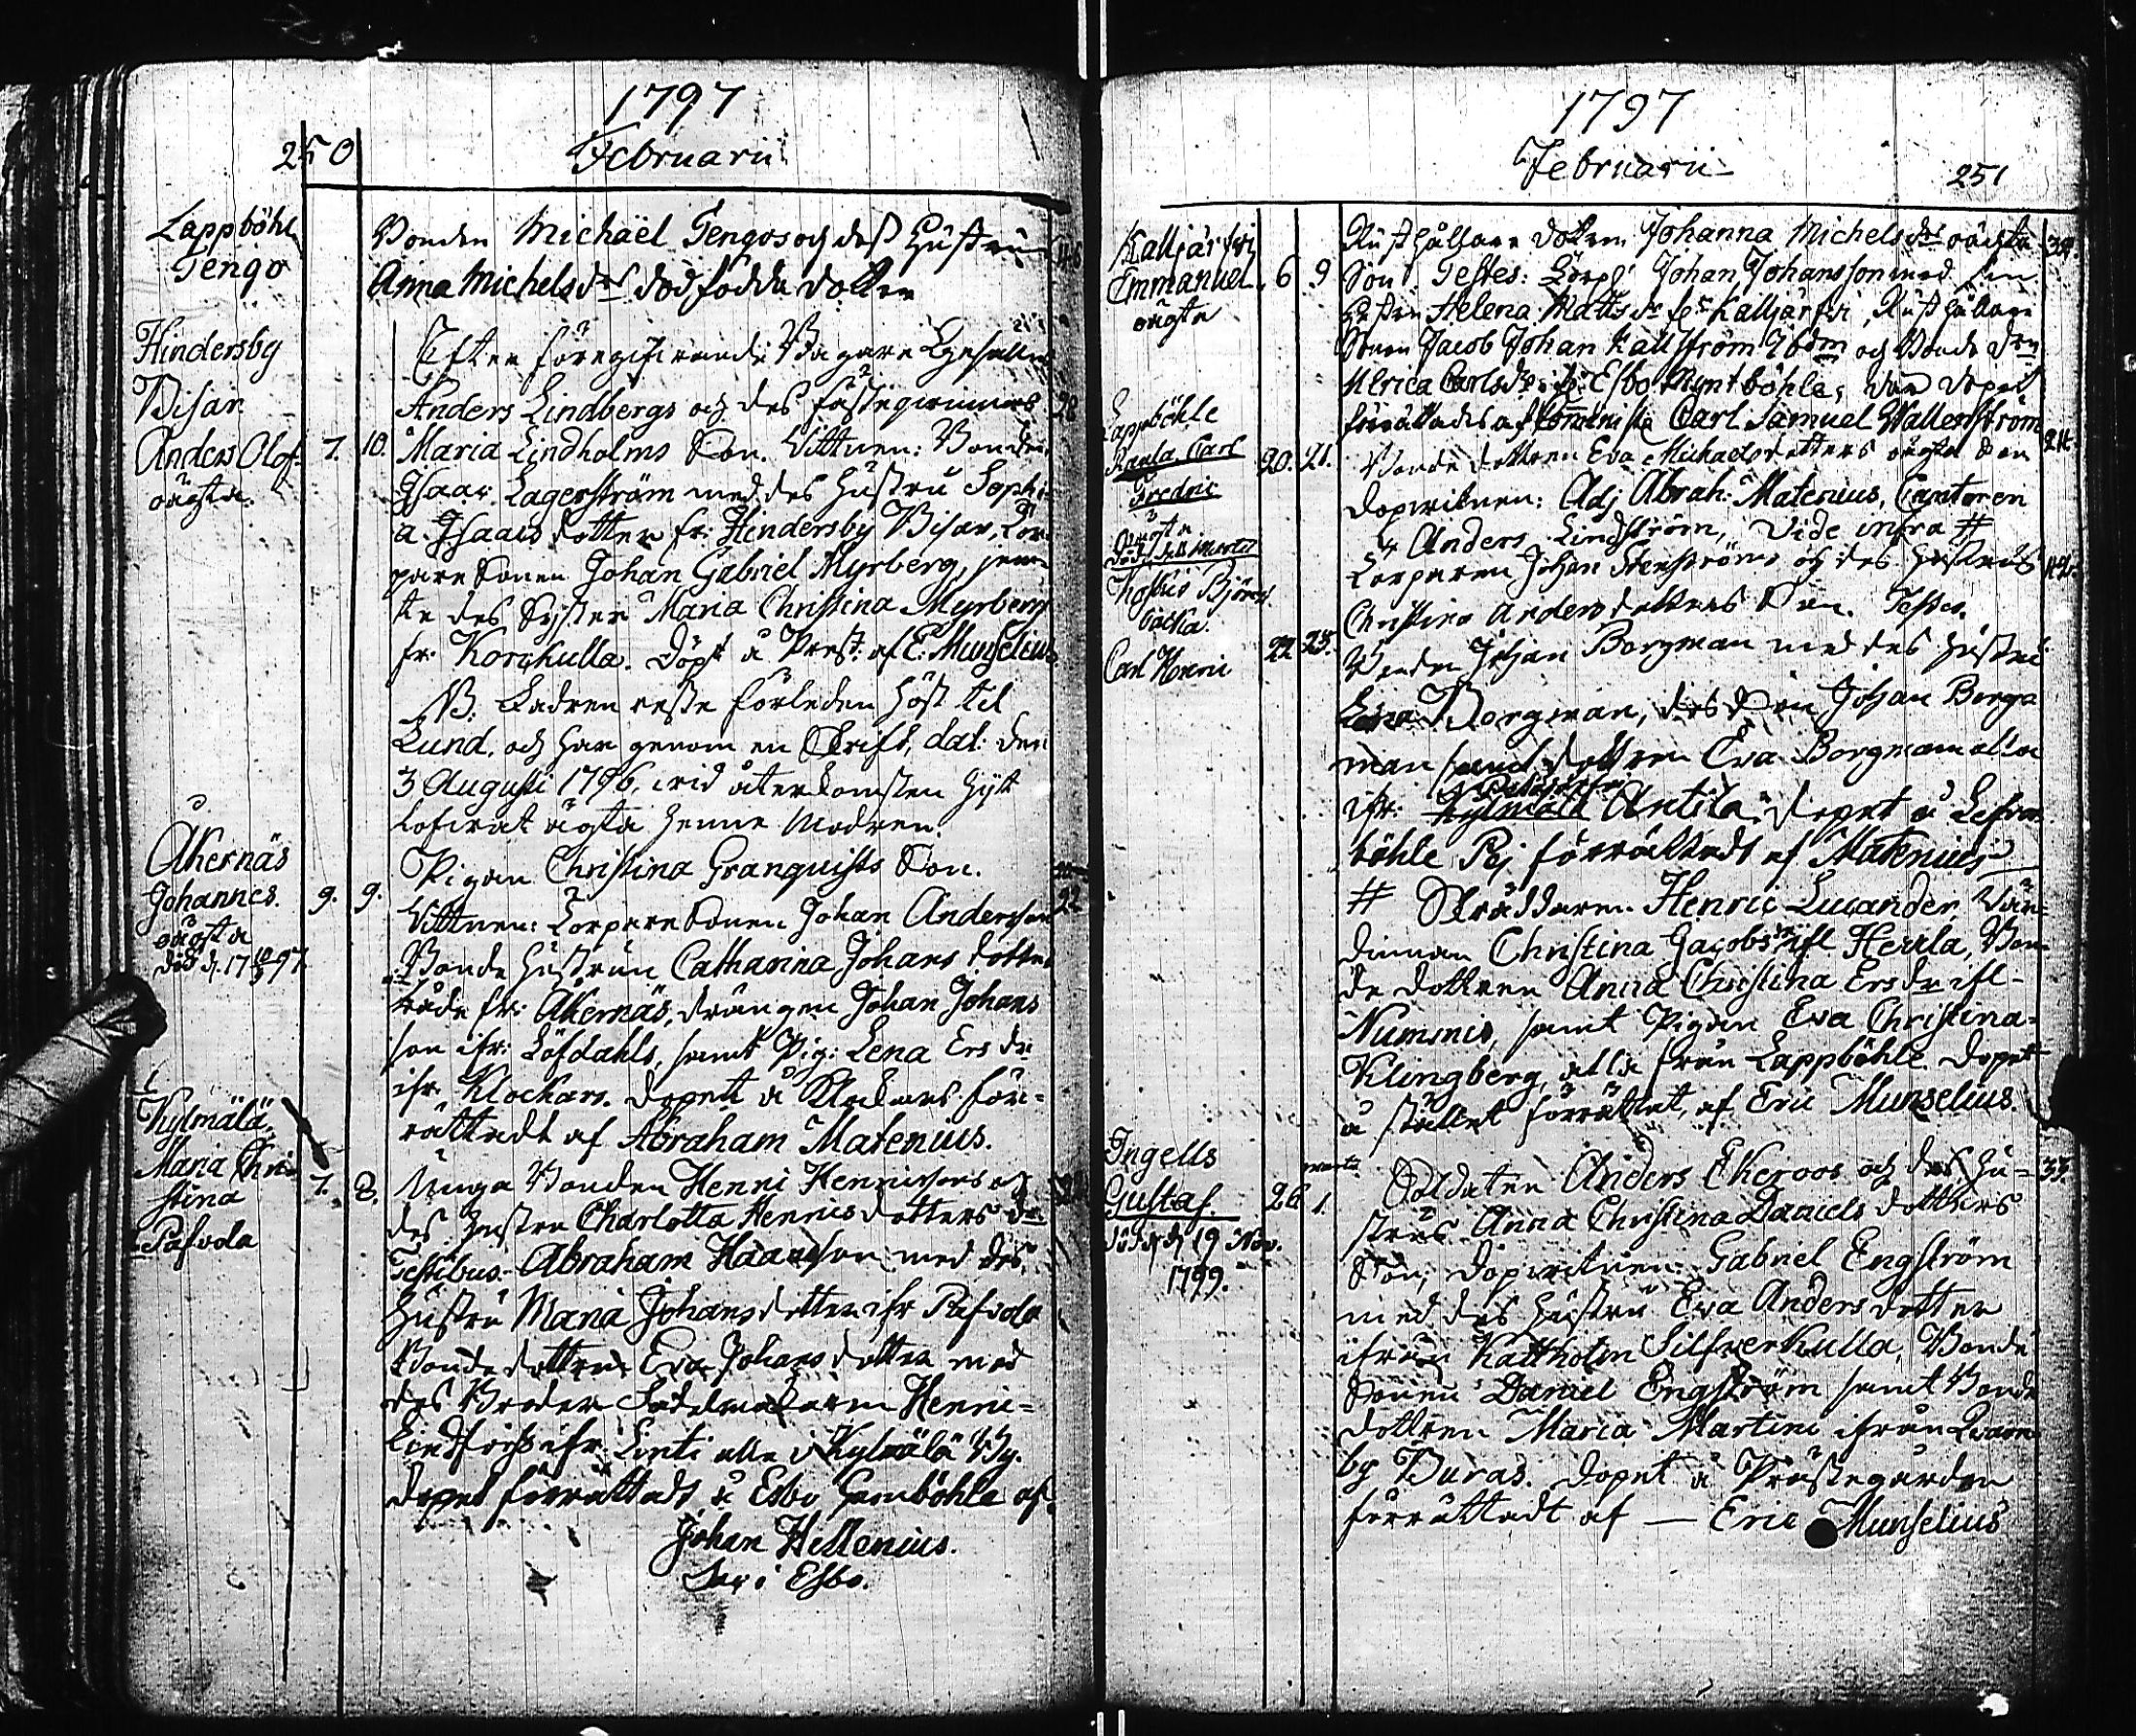 1797
Februarii
250
Lappböhle
Tengo
Bonden Michaël Tengos och dess Hustru
Anna Michelsdrs dödfödda dotter
Hindersby
Bisar
Anders Olof
oägta.
7. 10.
Efter föregifvande Bagare Gesällen
Anders Lindbergs och des fästeqvinnas
Maria Lindholms Son. Vittnen: Bonden
Isaac Lagerström med des Hustru Sophi-
a Isaacs dotter fr. Hindersby Bisar, Tor-
pare Sonen Johan Gabriel Myrberg, jem-
te des Syster Maria Christina Myrberg
fr. Korckulla. Döpt å Prest. af E: Munselius
NB. Fadren reste förleden Höst til
Lund, och har genom en Skrift, dat: den
3 Augusti 1796, vid återkomsten
lofvat ägta henne Modren.
Åkernäs
Johannes
oägta
död d. 17 97
9. 9.
Pigan Christina Granquists Son.
Vittnen: Torpare Sonen Johan Andersson
Bonde Hustrun Catharina Johans dotter
både fr. Åkernäs, drängen Johan Johans
son ifr: Löfdahls, samt Pig: Lena Ersdr
ifr. Klockars. dopet å Klockars för-
rättadt af Abraham Matenius.
Kylmälä
Maria Chri-
stina
Pafvola
7. 8.
Unga Bonden Henric Henricsons och
des Hustru Charlotta Henrics dotters dr
Testibus: Abraham Haanson med des
Hustru Maria Johans dotter ifr Pafvola
Bonde dottren Eva Johans dotter med
des Broder Sadelmakaren Henric
Lindfors ifr. Linti alle i Kylmälä By.
dopet förrättadt i Esbo Gamböhle af
Johan Hellenius.
Sac: i Esbo.
1797
Februarii
251
Kalljärfvi
Emmanuel
oägta
6 9
Rusthållare dottern Johanna Michelsdrs oägta
Son. Testes: Torp: Johan Johansson med sin
Hustru Helena Mattsdr fr. Kalljärfvi, Rusthållare
Sonen Jacob Johan Kallström ibdm och Bonde dtrn
Ulrica Carlsdr fr: Esbo Myntböhle, den dopet
förrättades af Comminister Carl Samuel Wallenström
Lappböhle
Raula Carl
Fredric
oägta
20. 21.
Bonde dottren Eva Michaels dotters oägta Son
dopvitnen: Adj Abrah: Matenius, Cantoren
Anders Lindström, Vide infra #
Björns
backa.
Carl Henric
22 23.
Torparen Johan Stenströms och des Hustrus
Christina Anders dotters Son. Testes.
Bonden Johan Borgman med des Hustru
Lena Borgman, des Son Johan Borg-
man samt dottren Eva Borgman alla
ifr. Antila, dopet å
böhle förrättadt af Matenius
# Skräddaren Henric Lucander, Vär-
dinnan Christina Jacobsdr ifr. Herrla, Bon-
de dottren Anna Christina Ersdr ifr.
Nummis, samt Pigan Eva Christina
Klingberg, alla från Lappböhle. Dopet
å stället förrättat, af Eric Munselius.
Ingells
Gustaf.
död d 19 Nov.
1799.
26 1.
Soldaten Anders Ekeroos och des Hu-
strus Anna Christina Daniels dotters
Son, dopvitnen: Gabriel Engström
med des Hustru Eva Anders dotter
ifrån Kattholm Silfverkulla, Bonde
Sonen Daniel Engström samt Bonde
dottren Maria Martini ifrån Qvarn-
by Buras. dopet å Prästegården
förrättadt af — Eric Munselius